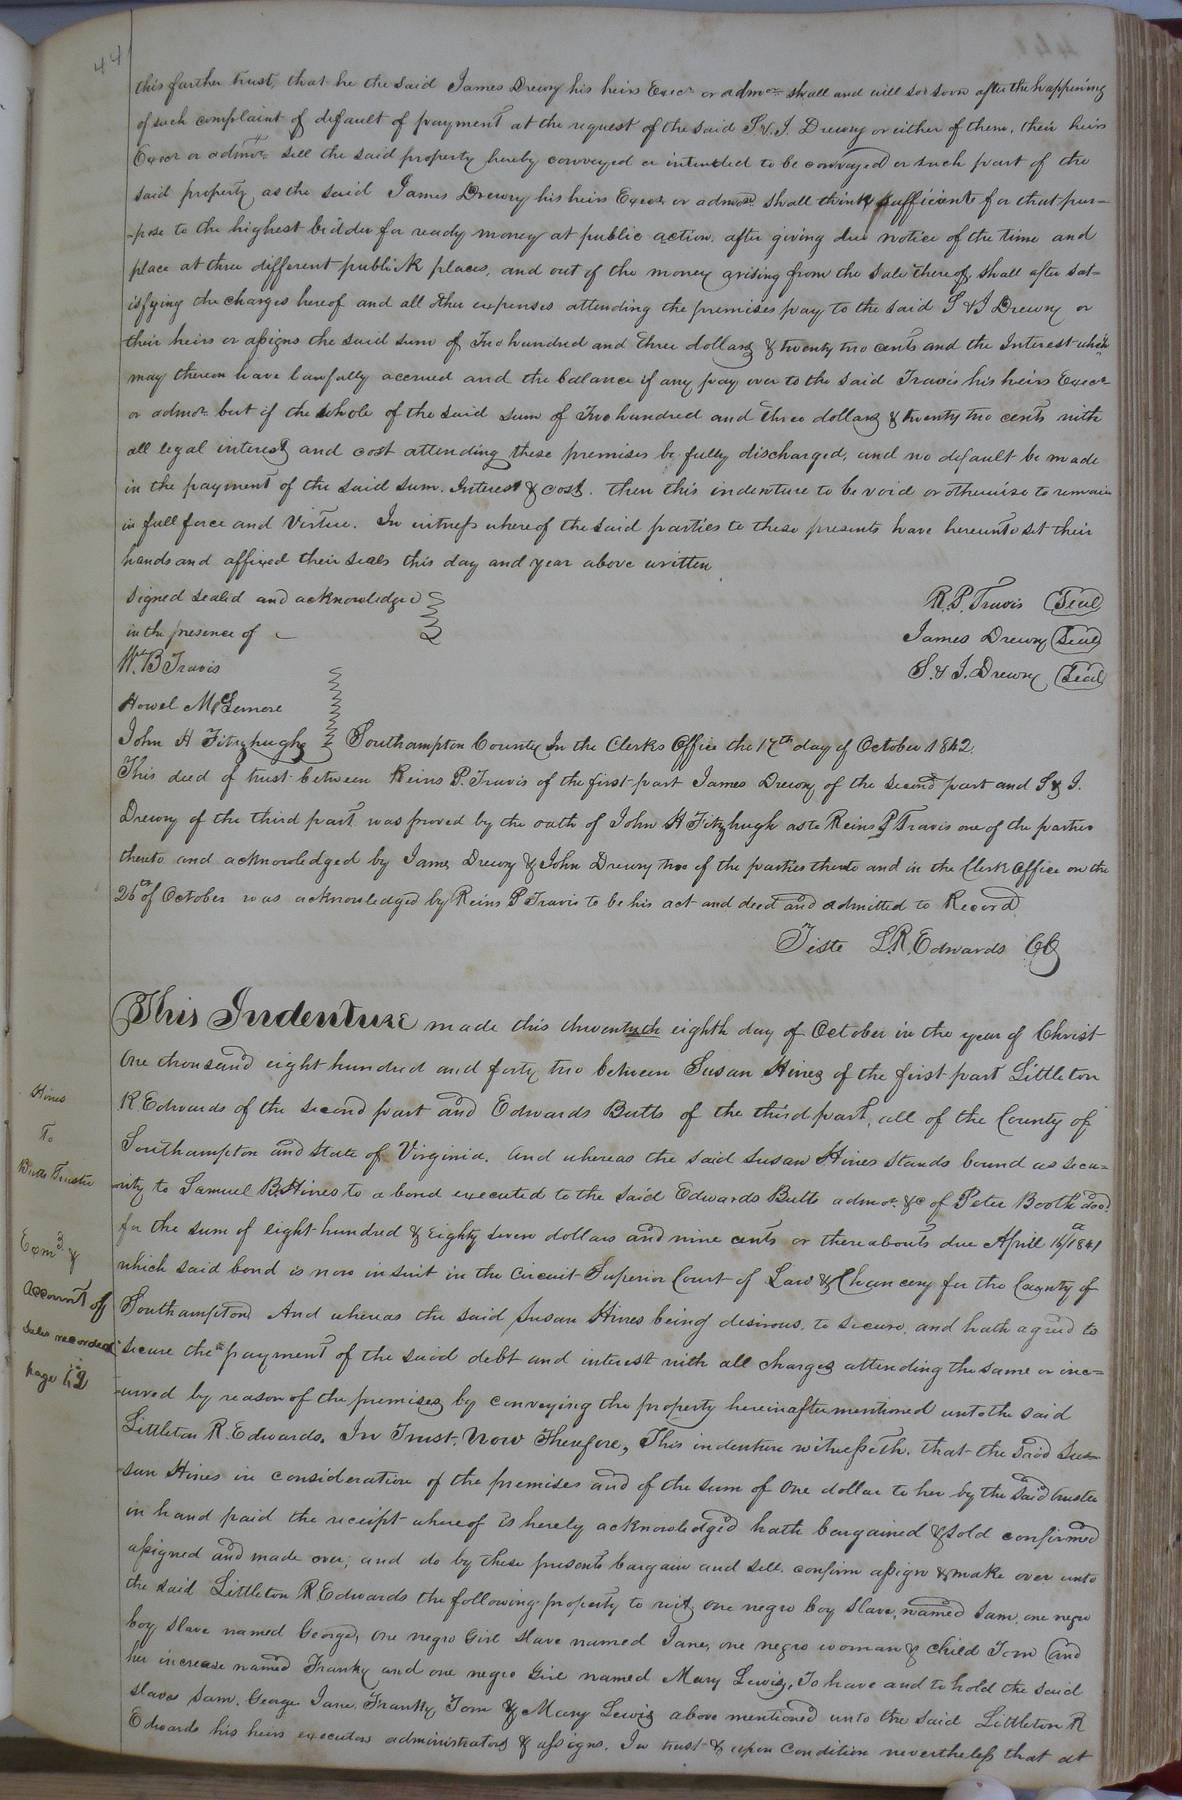 441
this further trust, that he the said James Drewry his heirs Execr or admors shall and will so soon after the happening
of such complaint of default of payment at the request of the said S. & J. Drewry or either of them, their heirs
Execr or admors sell the said property hereby conveyed or intended to be conveyed or such part of the
said property as the said James Drewry his heirs Execr or admors shall think sufficient for that pur-
-pose to the highest bidder for ready money at public action, after giving due notice of the time and
place at three different publick places, and out of the money arising from the sale thereof, shall after sat=
isfying the charges hereof and all other expenses attending the premises pay to the said S & J Drewry or
their heirs or assigns the said sum of Two hundred and three dollars & twenty two cents and the Interest which
may thereon have lawfully accrued and the balance if any pay over to the said Travis his heirs Execr
or admor but if the whole of the said sum of Two hundred and three dollars & twenty two cents with
all legal interest and cost attending these premises be fully discharged, and no default be made
in the payment of the said sum. Interest & cost. then this indenture to be void or otherwise to remain
in full force and Virtue. In witness whereof the said parties to these presents have hereunto set their
hands and affixed their seals this day and year above written
Signed sealed and acknowledged
in the presence of
R. P. Travis Seal
James Drewry Seal
S. & J. Drewry Seal
W. B Travis
Howel McLemore
John H Fitzhugh Southampton County In the Clerks Office the 17th day of October 1842
This deed of trust between Reins P. Travis of the first part James Drewry of the second part and S & J.
Drewry of the third part was proved by the oath of John H Fitzhugh as to Reins P Travis one of the parties
thereto and acknowledged by James Drewry & John Drewry two of the parties thereto and in the Clerk Office on the
26th of October was acknowledged by Reins P Travis to be his act and deed and admitted to Record
Teste L. R. Edwards CC
This Indenture made this twentyeth eighth day of October in the year of Christ
One thousand eight hundred and forty two between Susan Hines of the first part Littleton
R Edwards of the second part and Edwards Butts of the third part, all of the County of
Southampton and State of Virginia. And whereas the said Susan Hines stands bound as secu-
-rity to Samuel B. Hines to a bond executed to the said Edwards Butts admor &c of Peter Booth decd
for the sum of eight hundred & eighty seven dollars and nine cents or thereabouts due April 16th 1841
which said bond is now in suit in the Circuit Superior Court of Law & Chancery for the County of
Southampton And whereas the said Susan Hines being desirous, to secure, and hath agreed to
secure the payment of the said debt and interest with all charges attending the same or inc=
-urred by reason of the premises by conveying the property hereinaftermentioned unto the said
Littleton R. Edwards. In Trust. Now Therefore, This indenture witnesseth. that the said Su-
-san Hines in consideration of the premises and of the sum of One dollar to her by the said trustee
in hand paid the receipt whereof is hereby acknowledged hath bargained & sold confirmed
assigned and made over; and do by these presents bargain and sell. confirm assign & make over unto
the said Littleton R Edwards the following property to wit, one negro boy slave, named Sam, one negro
boy slave named George, one negro Girl slave named Jane, one negro woman & child Tom and
her increase named Franky and one negro Girl named Mary Lewis, To have and to hold the said
slaves Sam. George Jane. Franky Tom & Mary Lewis above mentioned unto the said Littleton R
Edwards his heirs executors administrators & assigns. In trust & upon condition nevertheless that at
Hines
To
Butts Trustee
Exmd &
account of
Sales recorded
page